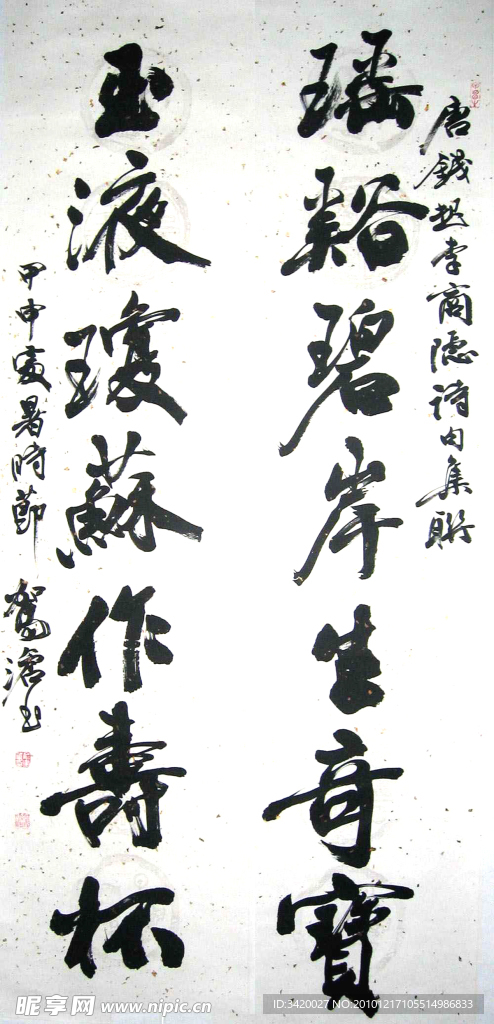 唐錢起李商隱詩句集聯
瑤谿碧岸生奇寶
玉液瓊蘇作壽杯
甲申處暑時節
昵享网 www.nipic.cn
ID:3420027 NO.20101217105514986833